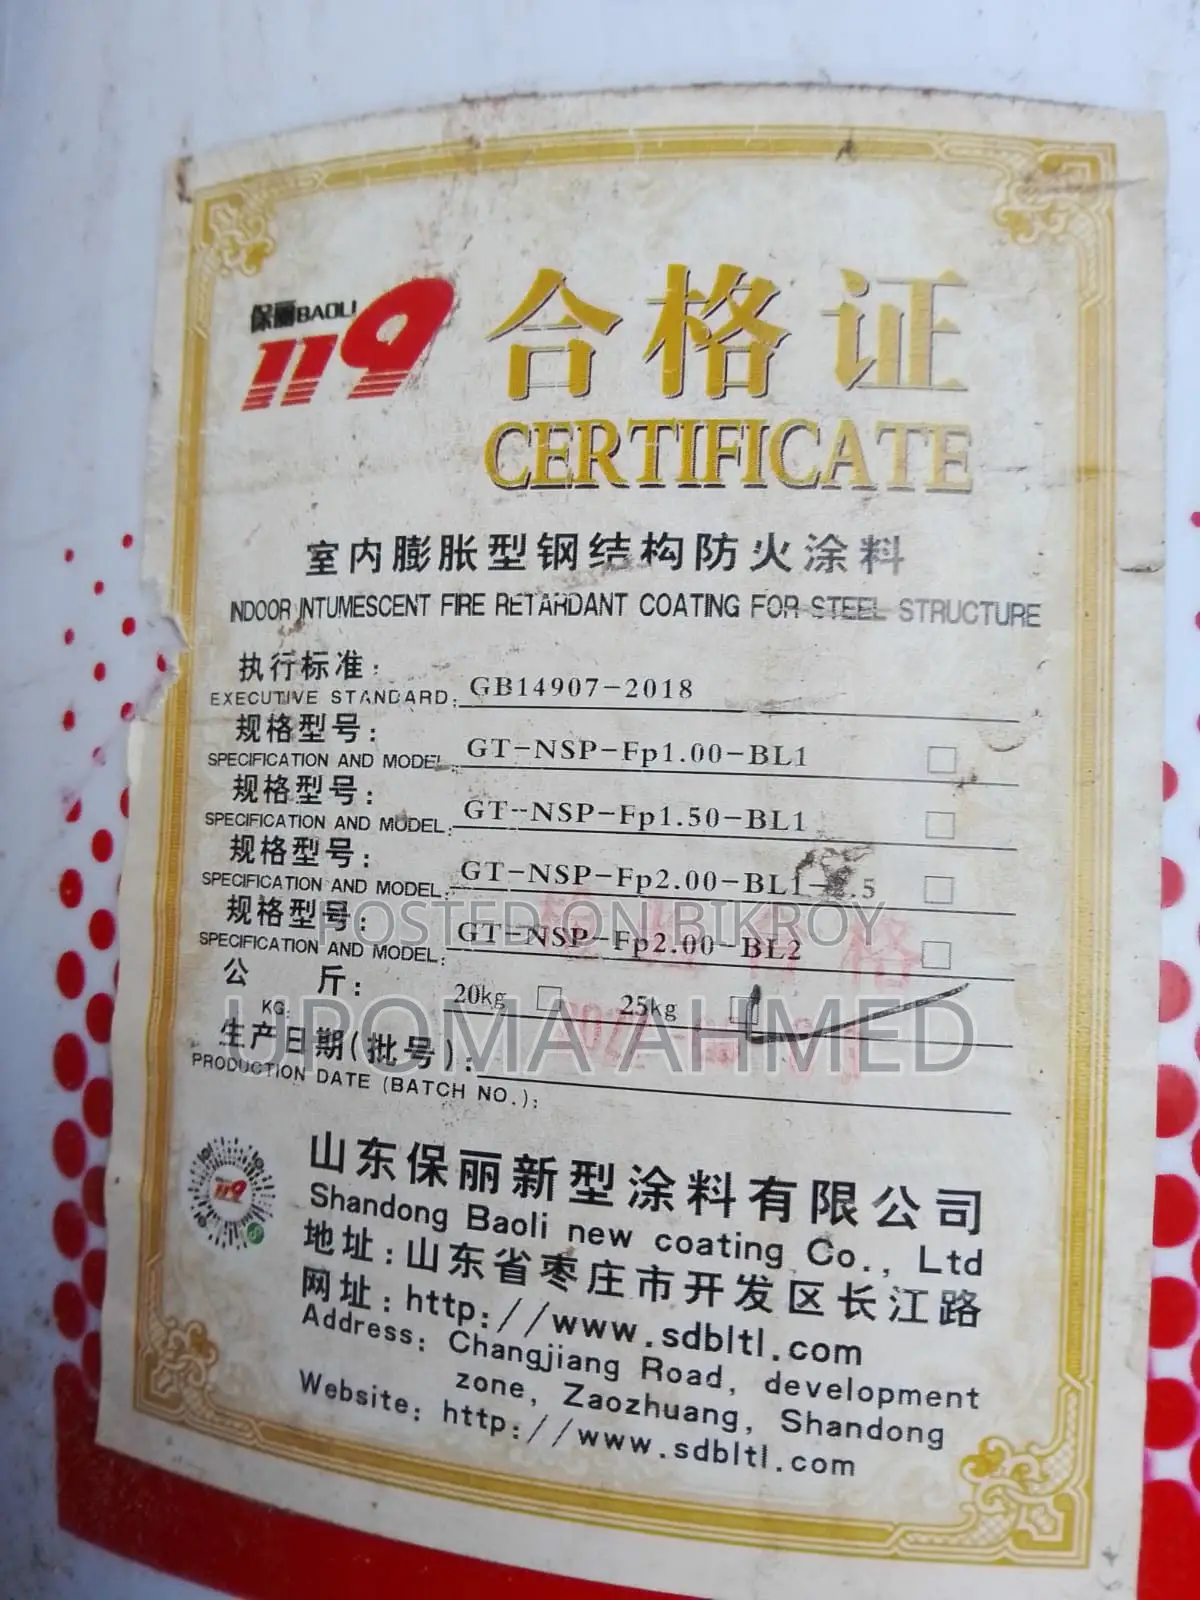 保丽BAOLI
119
合格证
CERTIFICATE
室内膨胀型钢结构防火涂料
INDOOR INTUMESCENT FIRE RETARDANT COATING FOR STEEL STRUCTURE
执行标准:
EXECUTIVE STANDARD: GB14907-2018
规格型号:
SPECIFICATION AND MODEL: GT-NSP-Fp1.00-BL1
规格型号:
SPECIFICATION AND MODEL: GT-NSP-Fp1.50-BL1
规格型号:
SPECIFICATION AND MODEL: GT-NSP-Fp2.00-BL1-.5
规格型号:
SPECIFICATION AND MODEL: GT-NSP-Fp2.00-BL2
POSTED ON BIKROY
合格
公 斤:
KG: 20kg 25kg
UPOMA AHMED
生产日期(批号):
PRODUCTION DATE (BATCH NO.):
119
山东保丽新型涂料有限公司
Shandong Baoli new coating Co., Ltd
地址:山东省枣庄市开发区长江路
网址:http://www.sdbltl.com
Address: Changjiang Road, development
zone, Zaozhuang, Shandong
Website: http://www.sdbltl.com